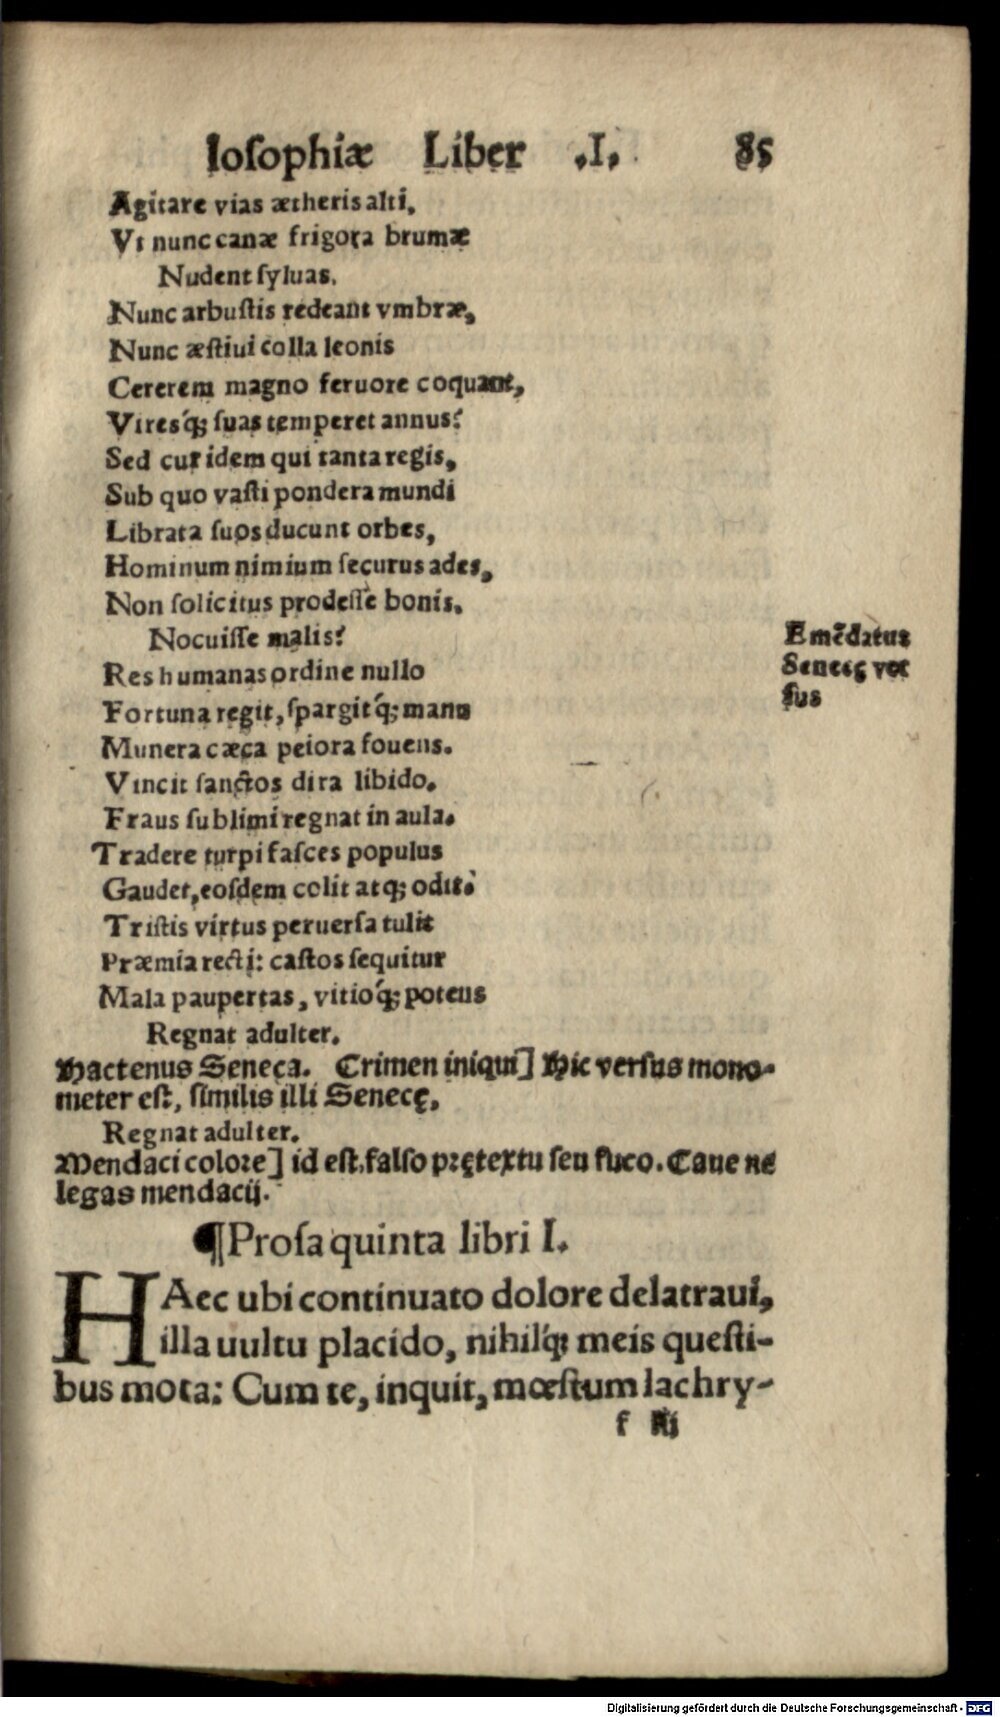 loſophiæ Liber .I. 85
Agitare vias ætheris alti.
Vt nunc canæ frigora brumæ
Nudent ſyluas.
Nunc arbuſtis redeant vmbræ,
Nunc æſtiui colla leonis
Cererem magno feruore coquant,
Viresq́; ſuas temperet annus?
Sed cur idem qui tanta regis,
Sub quo vaſti pondera mundi
Librata ſuos ducunt orbes,
Hominum nimium ſecurus ades,
Non ſolicitus prodeſſe bonis.
Nocuiſſe malis?
Res humanas ordine nullo
Fortuna regit, ſpargitq́; manu
Munera cæca peiora fouens.
Vincit ſanctos dira libido.
Fraus ſublimi regnat in aula.
Tradere turpi faſces populus
Gaudet, eoſdem colit atq; odit.
Triſtis virtus peruerſa tulit
Præmia recti: caſtos ſequitur
Mala paupertas, vitioq́; potens
Regnat adulter.
Emẽdatus
Senecę ver
ſus
Hactenus Seneca. Crimen iniqui] Hic verſus mono-
meter eſt, ſimilis illi Senecę.
Regnat adulter.
Mendaci colore] id eſt, falſo prętextu ſeu fuco. Caue ne
legas mendacij.
¶Proſa quinta libri I.
HAec ubi continuato dolore delatraui,
illa uultu placido, nihilq́; meis queſti-
bus mota: Cum te, inquit, mœſtum lachry-
f iij
Digitalisierung gefördert durch die Deutsche Forschungsgemeinschaft - DFG